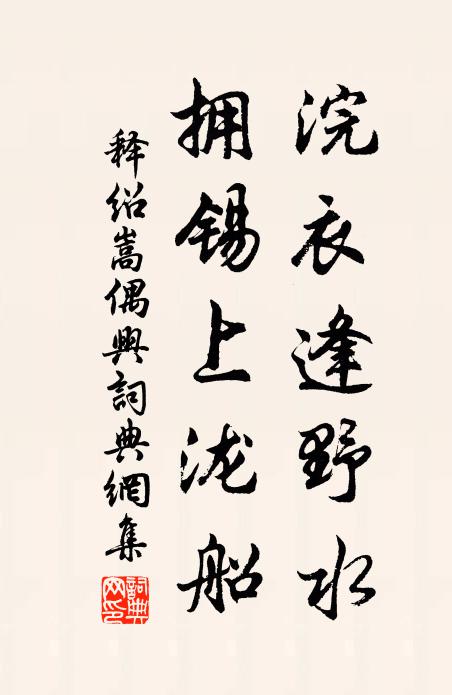 浣衣逢野水
拥锡上泷船
释绍嵩偶興詞典網集
詞典網印